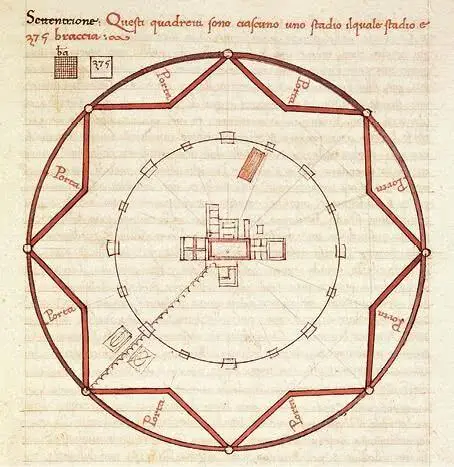 Settentrione: Questi quadretti sono ciascuno uno stadio ilquale stadio e
375 braccia:
ba
375
Porta
Porta
Porta
Porta
Porta
Porta
Porta
Porta